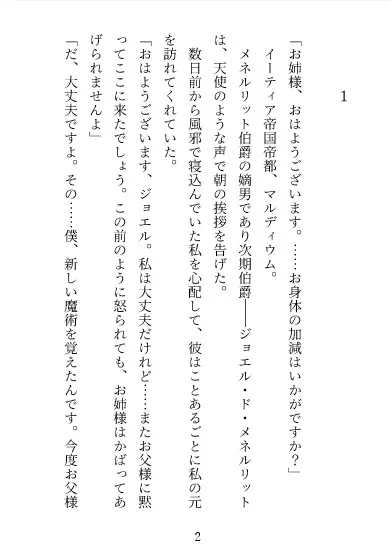 1
「お姉様、おはようございます。……お身体の加減はいかがですか？」
イーティア帝国帝都、マルディウム。
メネルリット伯爵の嫡男であり次期伯爵――ジョエル・ド・メネルリット
は、天使のような声で朝の挨拶を告げた。
数日前から風邪で寝込んでいた私を心配して、彼はことあるごとに私の元
を訪れてくれていた。
「おはようございます、ジョエル。私は大丈夫だけれど……またお父様に黙
ってここに来たでしょう。この前のように怒られても、お姉様はかばってあ
げられませんよ」
「だ、大丈夫ですよ。その……僕、新しい魔術を覚えたんです。今度お父様
2